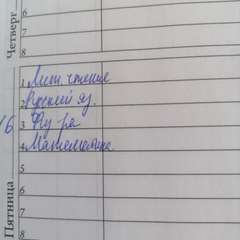 Четверг
6
7
8
1 Лит. чтение
2 Русский яз.
6 3 Физ-ра
4 Математика
5
6
7
8
Пятница